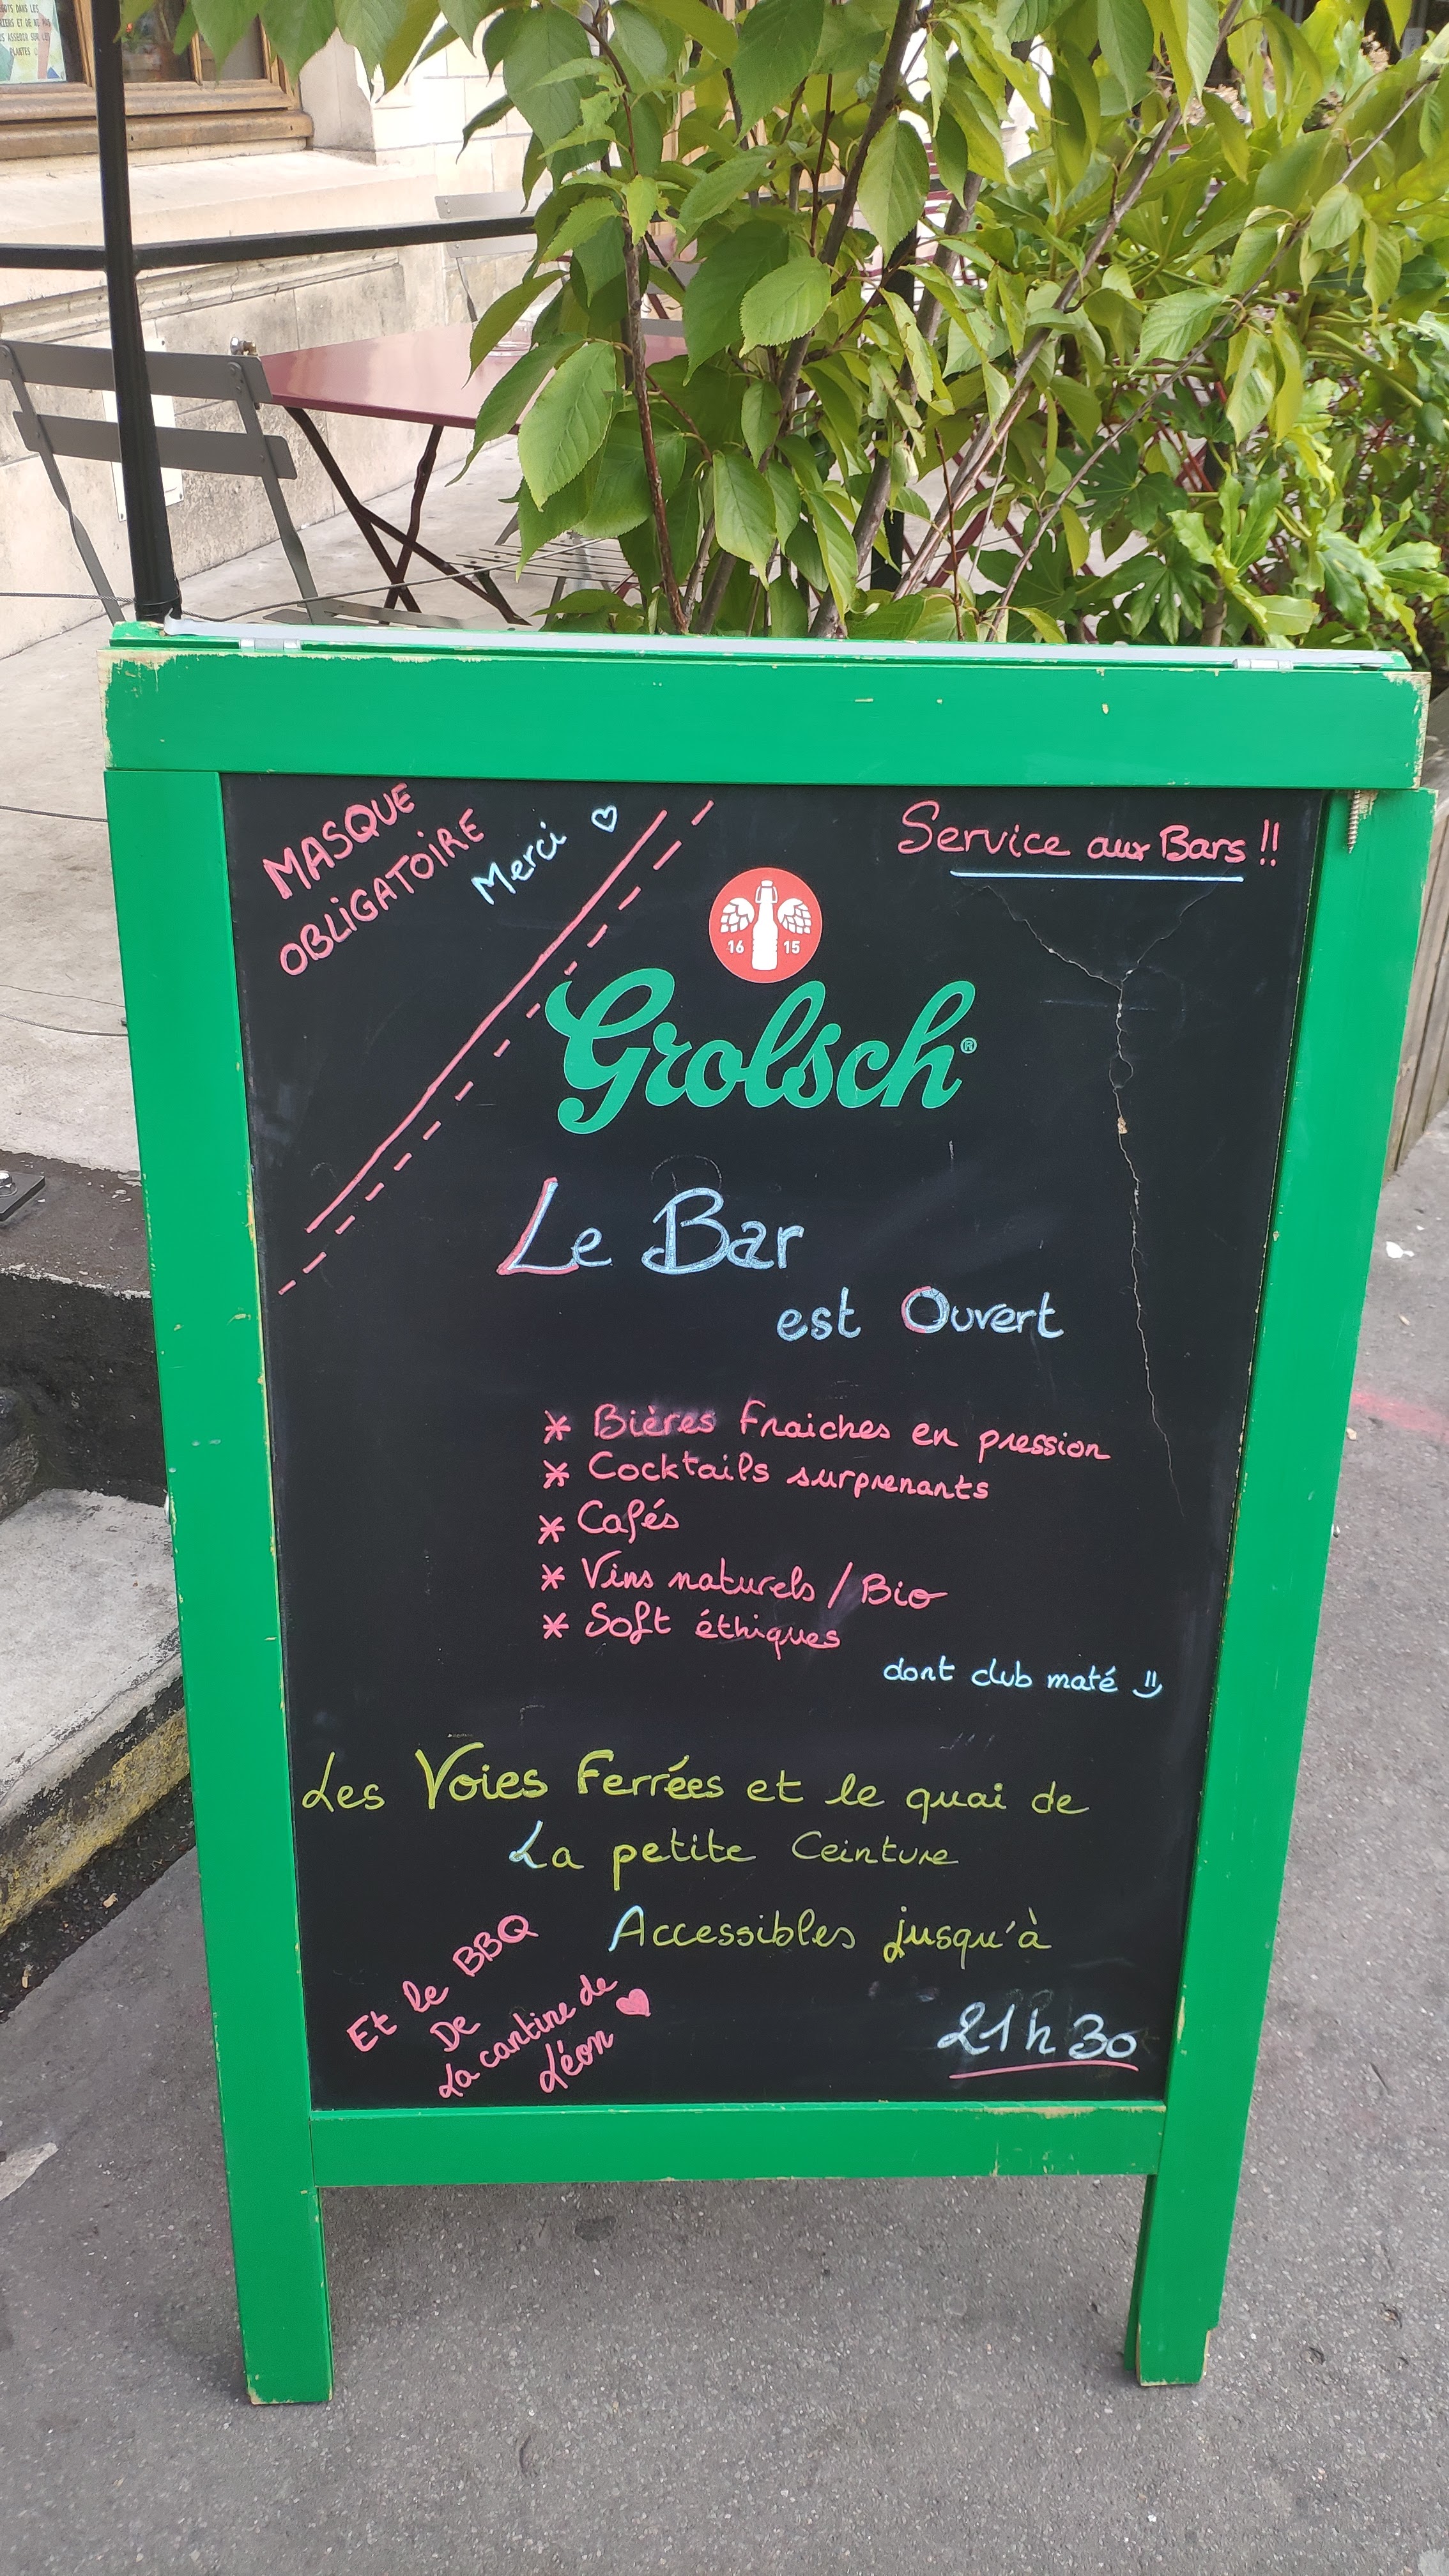 MASQUE
OBLIGATOIRE
Merci
Service aux Bars !!
16 15
Grolsch®
Le Bar
est Ouvert
* Bières Fraiches en pression
* Cocktails surprenants
* Cafés
* Vins naturels / Bio
* Soft éthiques
dont club maté
Les Voies Ferrées et le quai de
La petite Ceinture
Accessibles jusqu'à
21h30
Et le BBQ
De
La cantine de
Léon